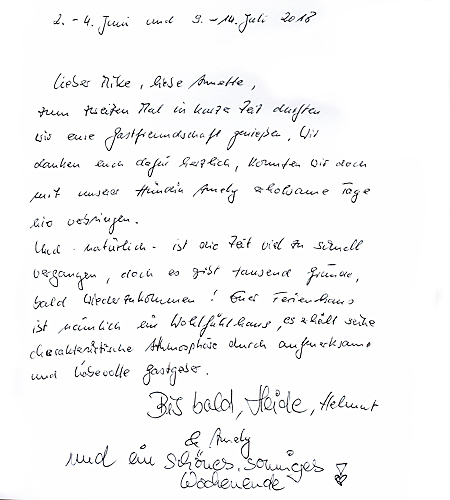 2. - 4. Juni und 9. - 14. Juli 2018
Lieber Mike, liebe Annette,
zum zweiten Mal in kurzer Zeit durften
wir eure Gastfreundschaft genießen. Wir
danken euch dafür herzlich, konnten wir doch
mit unserer Hündin Andy erholsame Tage
hier verbringen.
Und - natürlich - ist die Zeit viel zu schnell
vergangen, doch es gibt tausend Gründe,
bald wiederzukommen! Euer Ferienhaus
ist nämlich ein Wohlfühlhaus, es erhält seine
charakteristische Athmosphäre durch aufmerksame
und liebevolle Gastgeber.
Bis bald, Heide, Helmut
& Andy
und ein schönes, sonniges
Wochenende